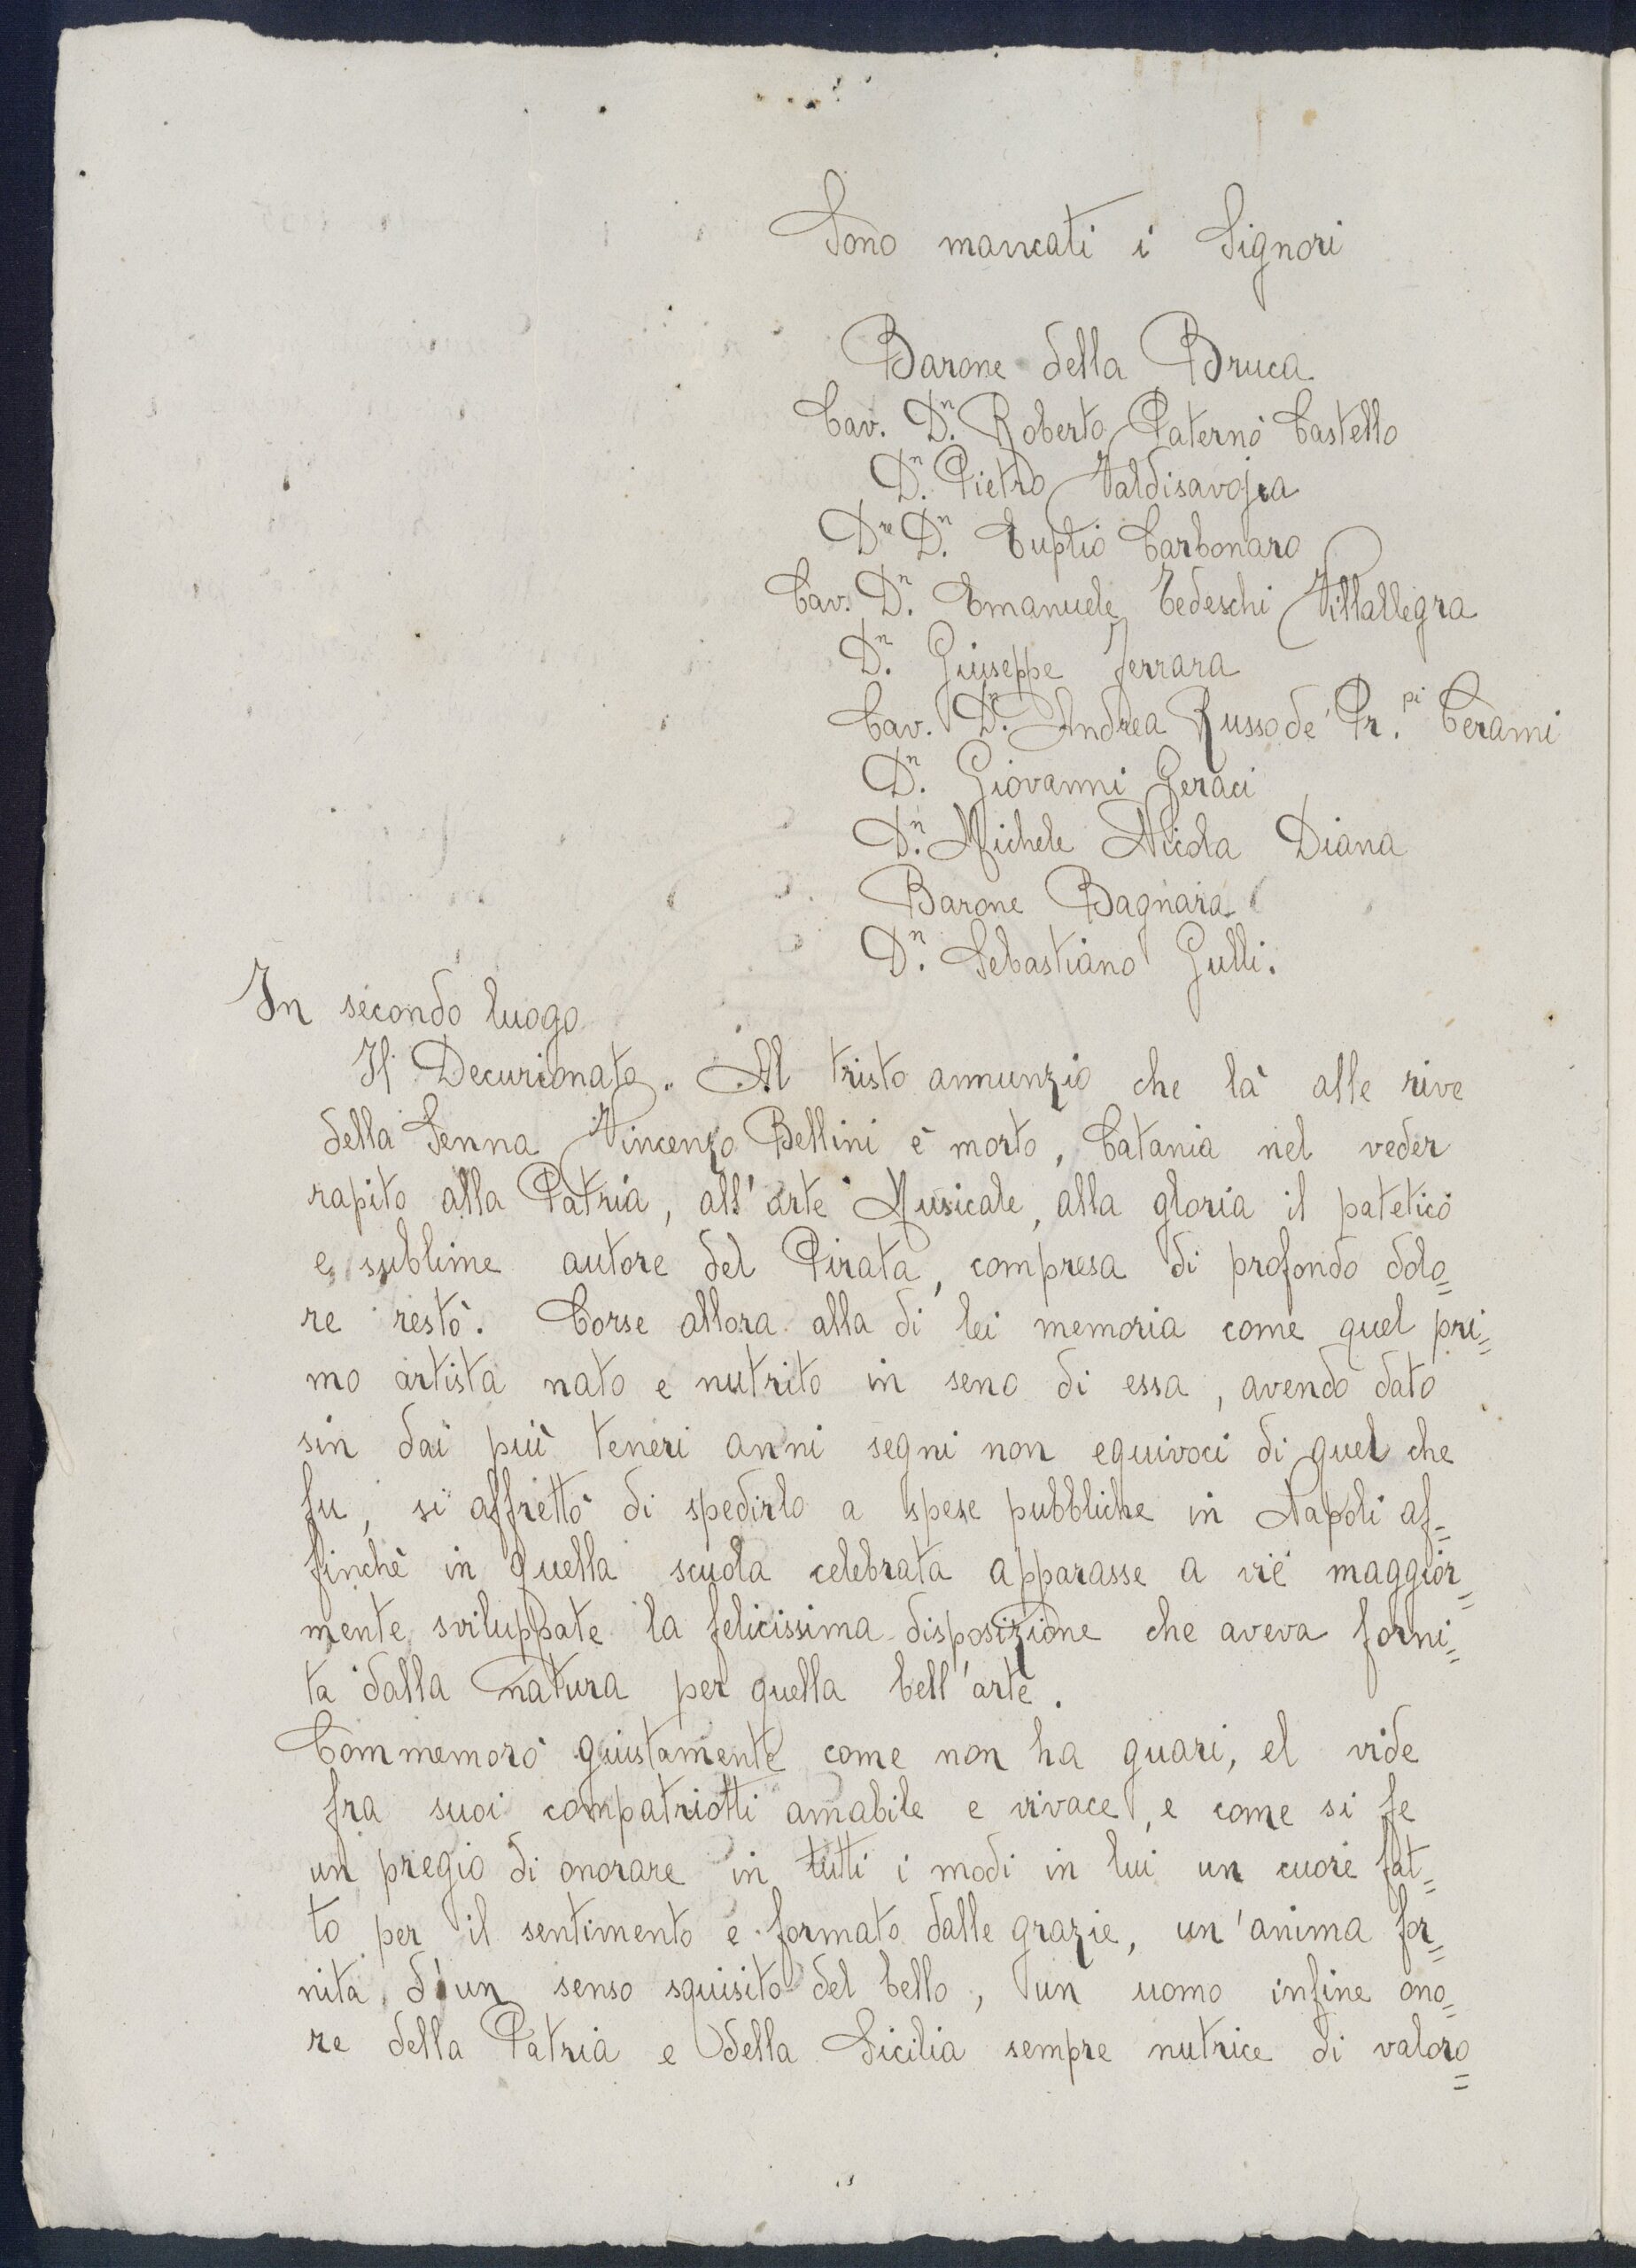 Sono mancati i Signori
Barone della Bruca
Cav. D.n Roberto Paternò Castello
D.n Pietro Valdisavoja
D.re D.n Euplio Carbonaro
Cav. D.n Emanuele Tedeschi Villallegra
D.n Giuseppe Ferrara
Cav. D.n Andrea Russo de' Pr.pi Cerami
D.n Giovanni Geraci
D.n Michele Nicola Diana
Barone Bagnara
D.n Sebastiano Gulli.
In secondo luogo
Il Decurionato. Al tristo annunzio che là alle rive
della Senna Vincenzo Bellini è morto, Catania nel veder
rapito alla Patria, all'arte Musicale, alla gloria il patetico
e sublime autore del Pirata, compresa di profondo dolo=
re restò. Corse allora alla di lei memoria come quel pri=
mo artista nato e nutrito in seno di essa, avendo dato
sin dai più teneri anni segni non equivoci di quel che
fu, si affrettò di spedirlo a spese pubbliche in Napoli af=
finchè in quella scuola celebrata apparasse a viè maggior=
mente sviluppate la felicissima disposizione che aveva forni=
ta dalla natura per quella bell'arte.
Commemorò giustamente come non ha guari, el vide
fra suoi compatriotti amabile e vivace, e come si fe
un pregio di onorare in tutti i modi in lui un cuore fat=
to per il sentimento e formato dalle grazie, un'anima for=
nita d'un senso squisito del bello, un uomo infine ono=
re della Patria e della Sicilia sempre nutrice di valoro=